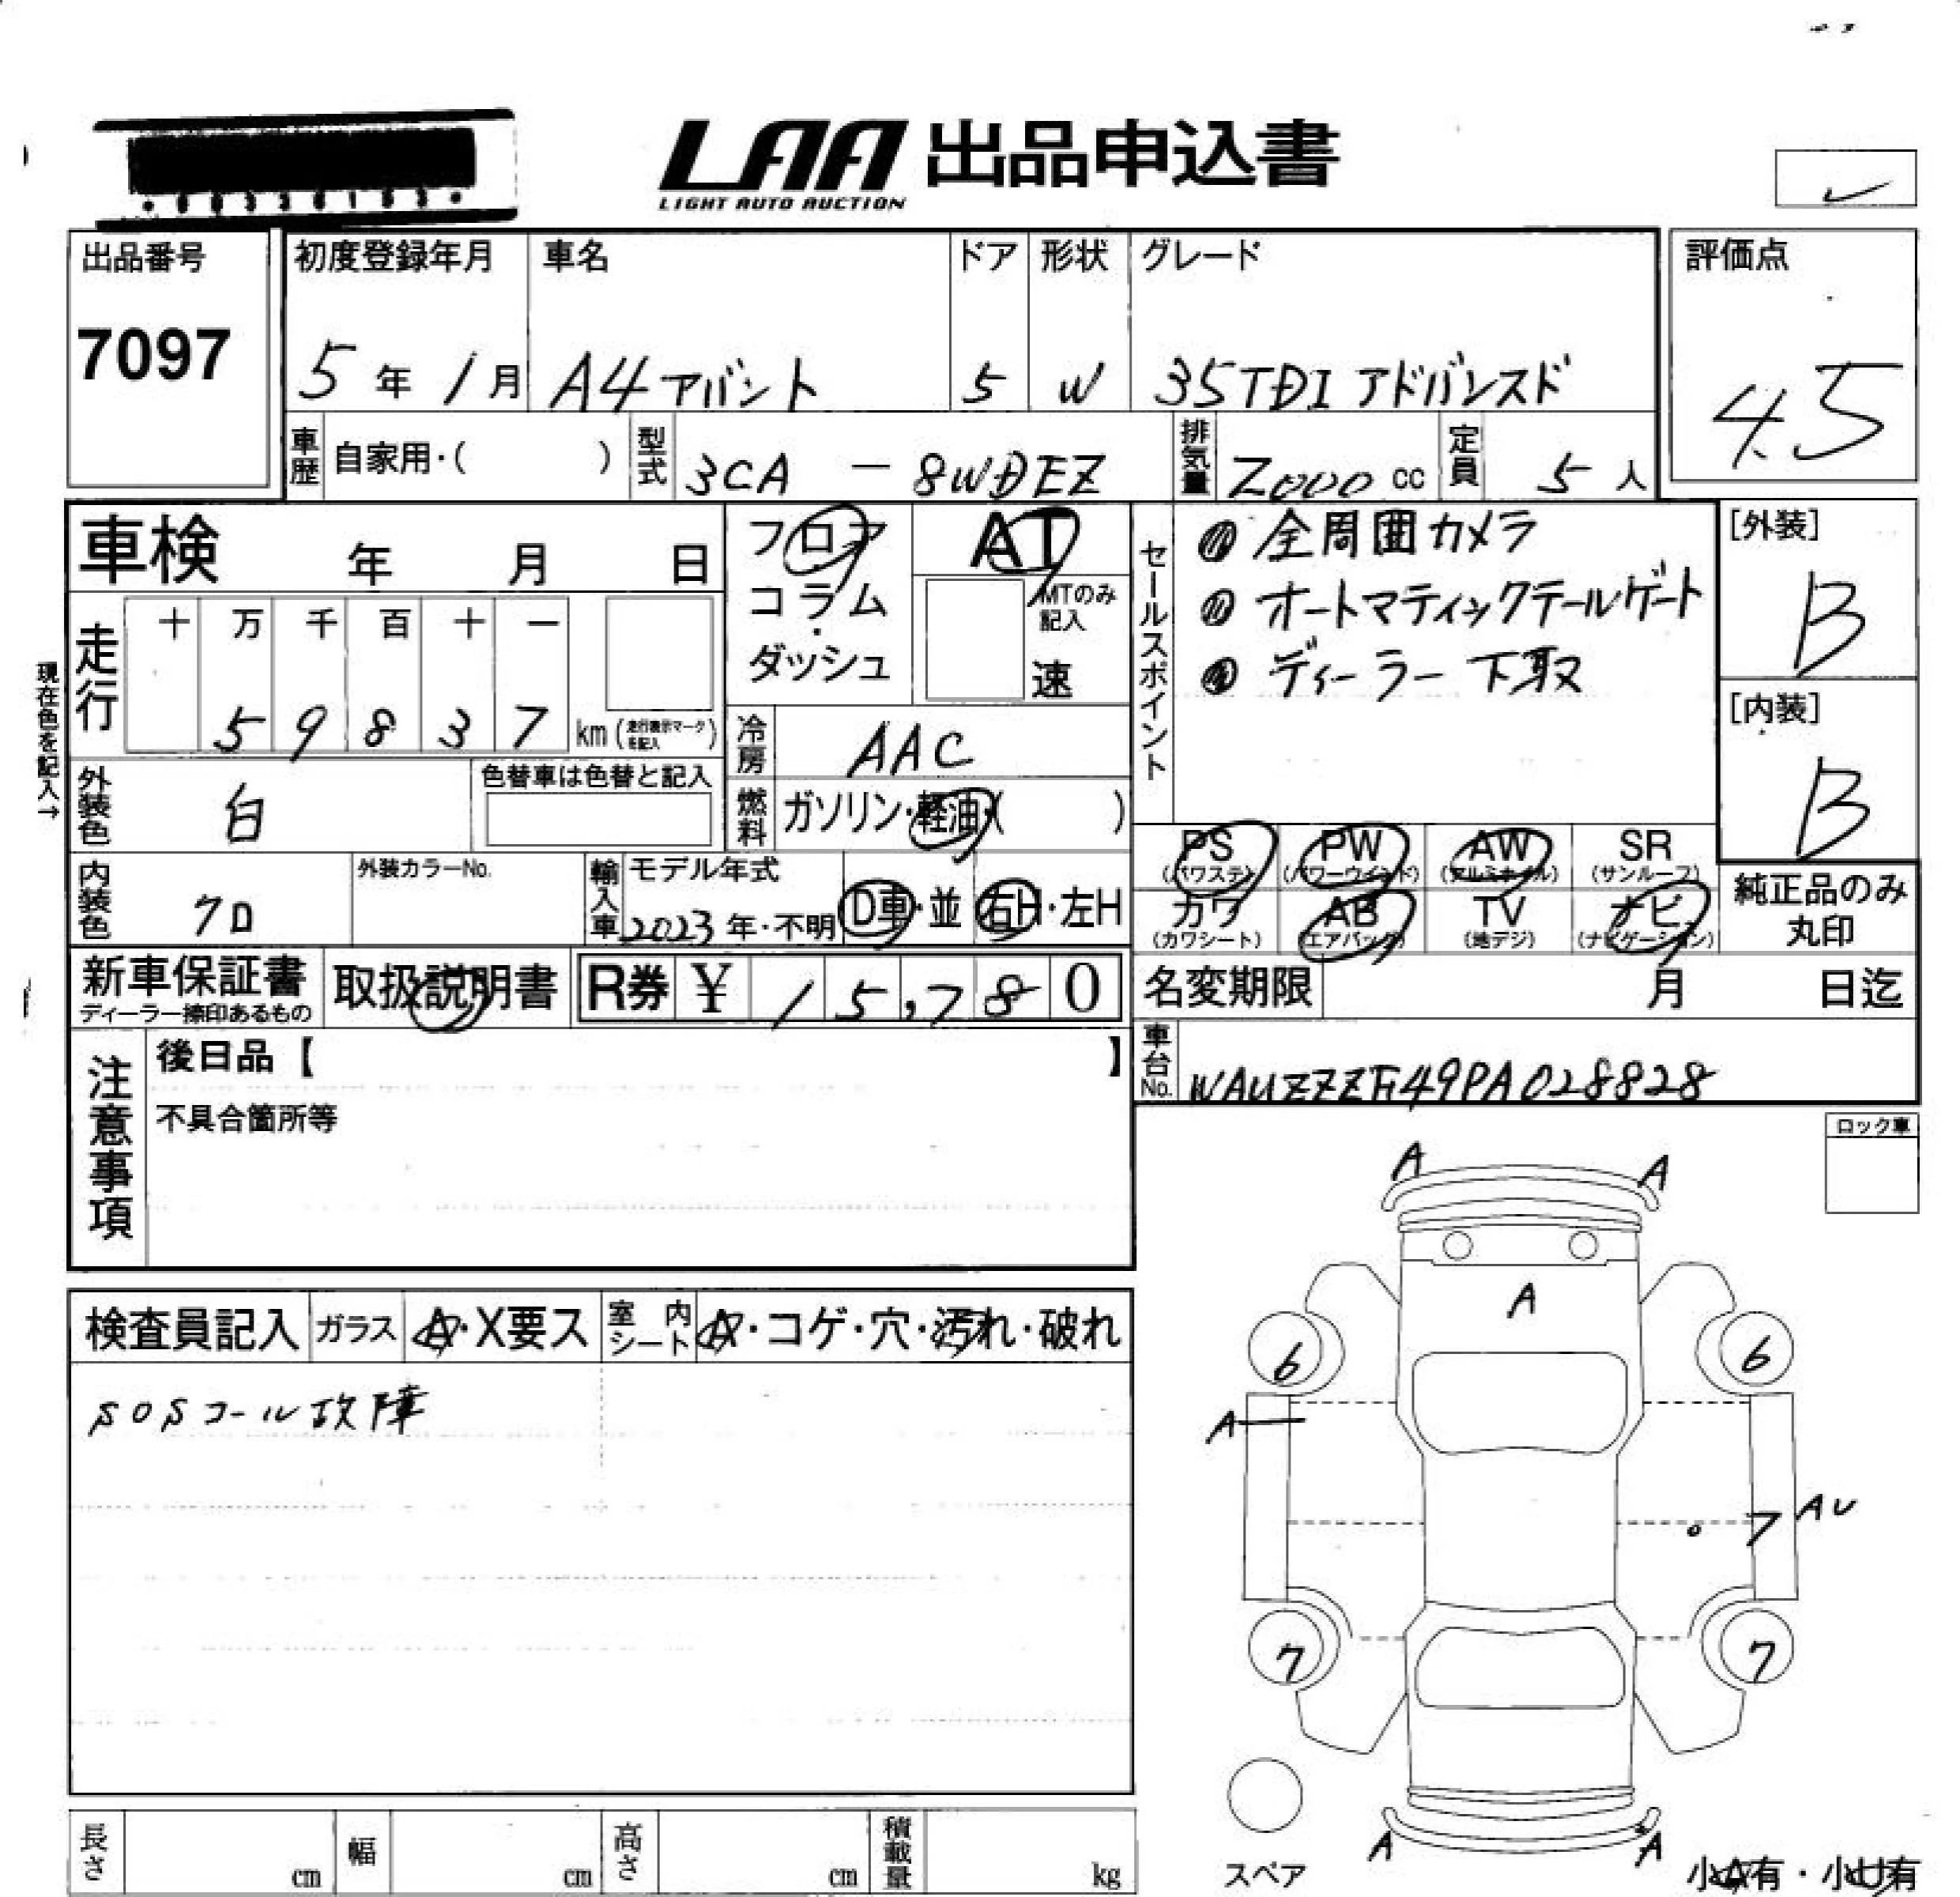 LAA 出品申込書
LIGHT AUTO AUCTION
出品番号
7097
初度登録年月
5年1月
車名
A4アバント
ドア
5
形状
W
グレード
35TDI アドバンスド
評価点
4.5
車歴 自家用・( )
型式 3CA - 8WDEZ
排気量 2000 cc
定員 5人
車検 年 月 日
フロア
コラム
・
ダッシュ
AT
MTのみ記入
速
セールスポイント
① 全周囲カメラ
② オートマティックテールゲート
③ ディーラー下取
[外装]
B
[内装]
B
現在色を記入→
走行 十 万 千 百 十 一
5 9 8 3 7 km (走行表示マークを記入)
冷房 AAC
外装色 白
色替車は色替と記入
燃料 ガソリン・軽油・( )
内装色 クロ
外装カラーNo.
輸入車 モデル年式
2023年・不明 D車・並 右H・左H
PS (パワステ)
PW (パワーウインド)
AW (アルミホイル)
SR (サンルーフ)
カワ (カワシート)
AB (エアバッグ)
TV (地デジ)
ナビ (ナビゲーション)
純正品のみ
丸印
新車保証書
ディーラー捺印あるもの
取扱説明書
R券 ¥ 15,780
名変期限 月 日迄
車台No. WAUZZZF49PA028828
注意事項
後日品【 】
不具合箇所等
ロック車
検査員記入 ガラス A・X要ス 室内シート A・コゲ・穴・汚れ・破れ
SOSコール故障
A A
A
6 6
A
AU
7
7 7
A A
スペア
小A有・小U有
長さ cm 幅 cm 高さ cm 積載量 kg